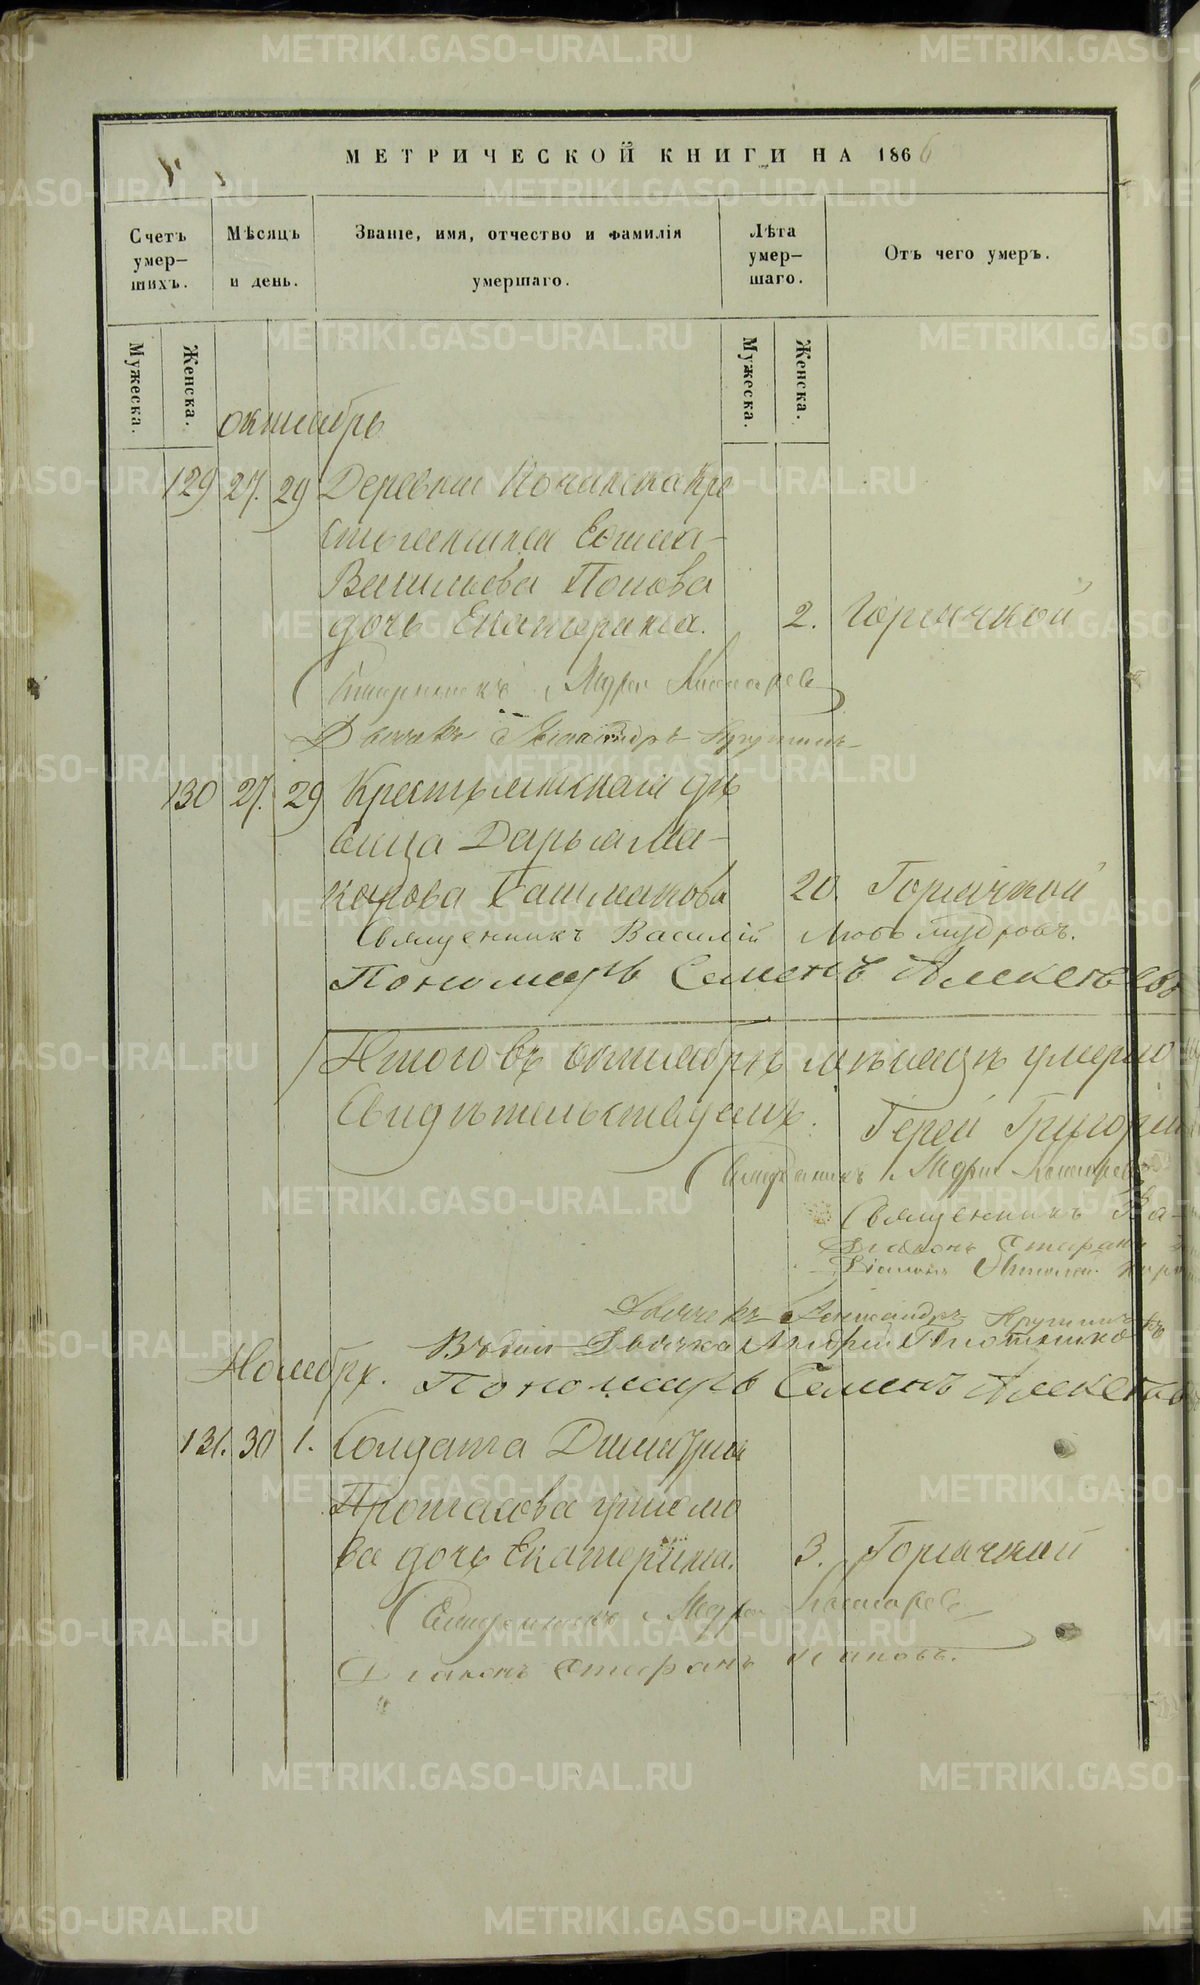 МЕТРИЧЕСКОЙ КНИГИ НА 1866
Счетъ умершихъ.
Мѣсяцъ и день.
Званіе, имя, отчество и фамилія умершаго.
Лѣта умершаго.
Отъ чего умеръ.
Мужеска.
Женска.
Мужеска.
Женска.
октябрь
129 27. 29 Деревни Починка Кре
стьянина
Васильева Попова
дочь Екатерина. 2. Горячкой
Священникъ
Дьячекъ Александръ
130 27. 29 Крестьянская дѣ
вица Дарья Ма-
карова Башмакова 20. Горячкой
Священникъ Василій Любомудровъ.
Пономарь Семенъ Алексѣевъ
Итого въ октябрѣ мѣсяцѣ умерло
Свидѣтельствуемъ. Іерей Григорій
Священникъ
Священникъ Ва-
Діаконъ Стефанъ
Діаконъ
Дьячекъ Александръ
Дьячка Андрей
Ноябрь. Пономарь Семенъ
131. 30 1. Солдата Димитрія
ва дочь Екатерина. 3. Горячкой
Священникъ
Діаконъ Стефанъ Поповъ.
METRIKI.GASO-URAL.RU